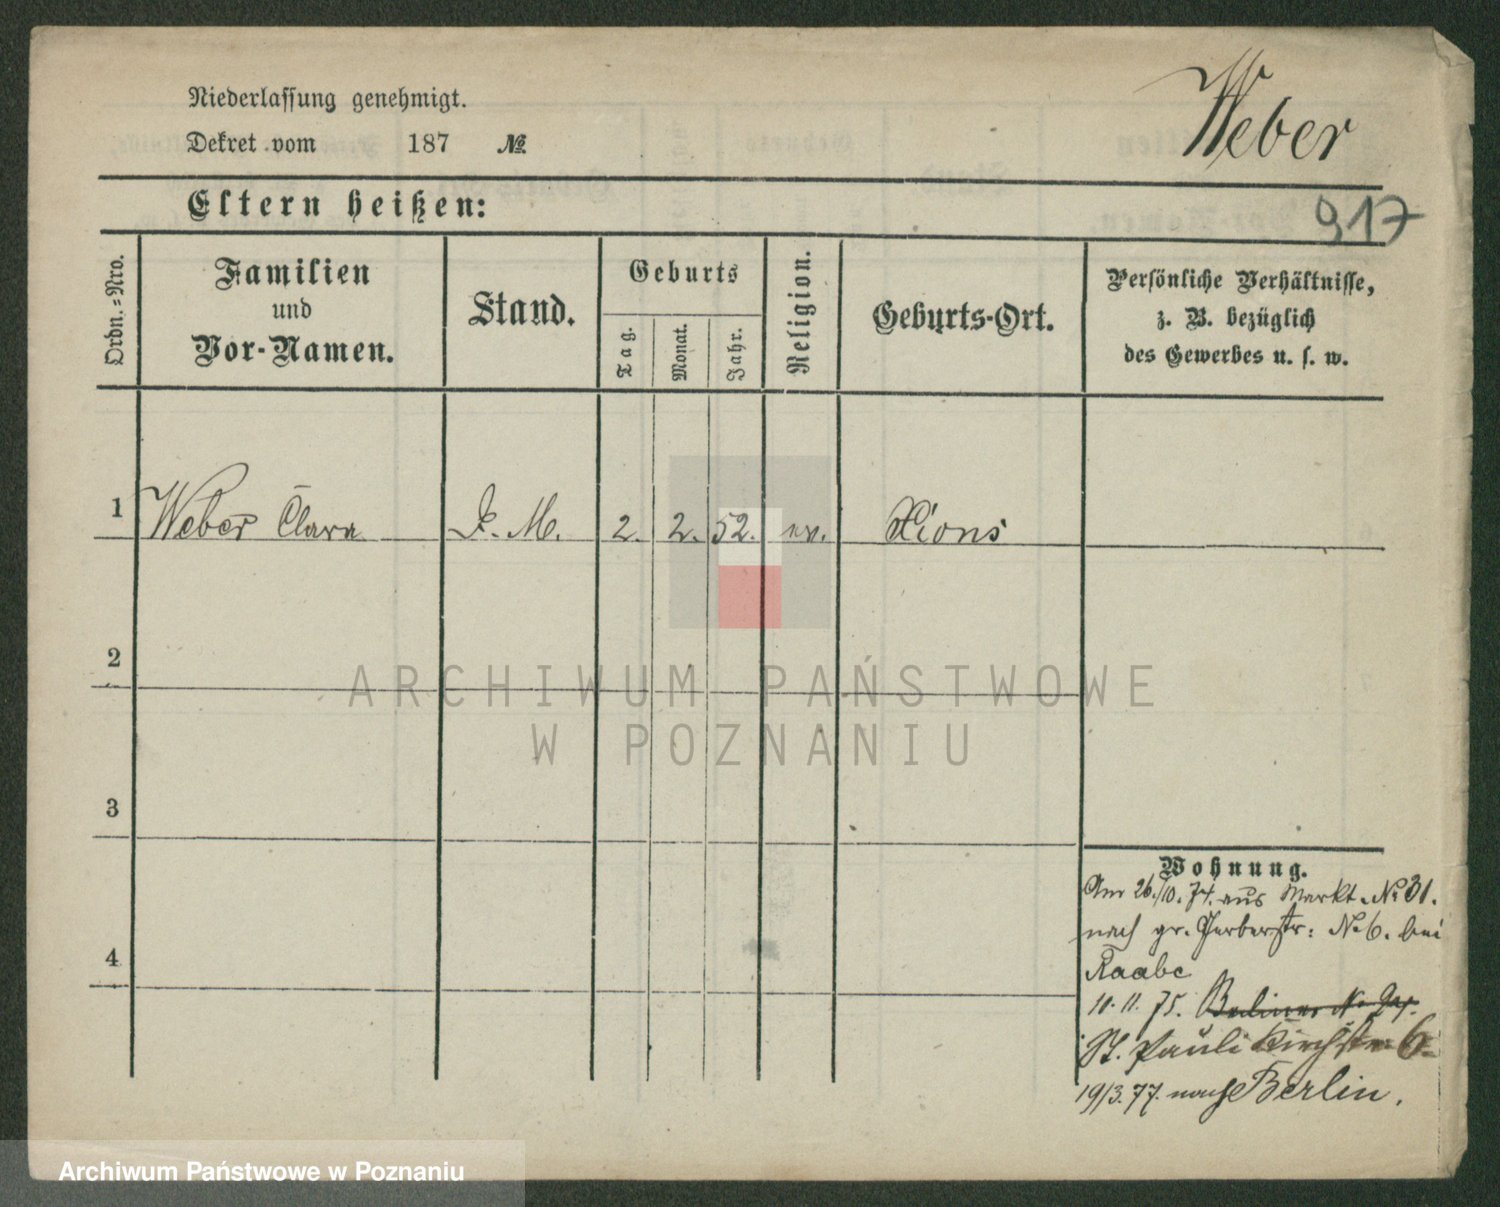 Niederlassung genehmigt.
Dekret vom 187 №
Weber
Eltern heißen:
917
Ordn.-Nro.
Familien
und
Vor-Namen.
Stand.
Geburts
Tag.
Monat.
Jahr.
Religion.
Geburts-Ort.
Persönliche Verhältnisse,
z. B. bezüglich
des Gewerbes u. s. w.
1 Weber Clara D. M. 2. 2. 52. ev. Xions
2
ARCHIWUM PAŃSTWOWE
W POZNANIU
3
Wohnung.
Am 26./10. 74. aus Markt. № 31.
nach gr. Gerberstr: № 6. bei
4
Raabe
10. 11. 75. Berliner №
St. Pauli Kirchstr. 6
19/3. 77. nach Berlin.
Archiwum Państwowe w Poznaniu